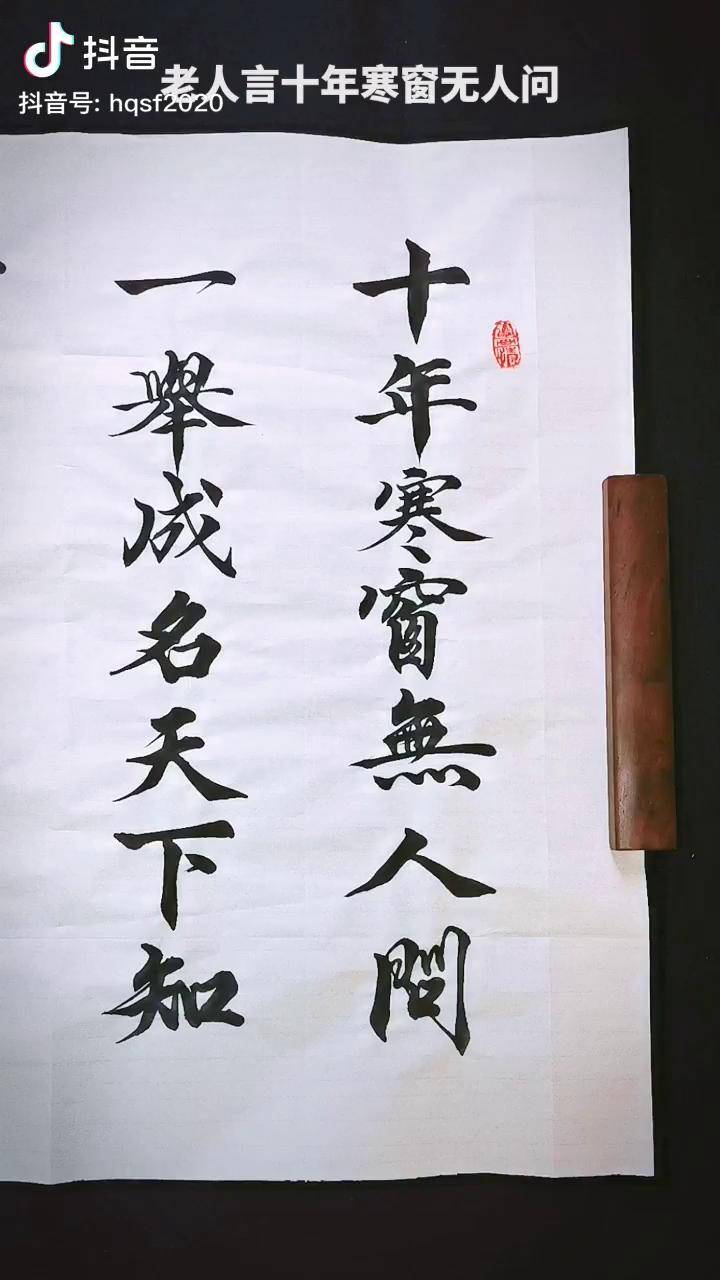 抖音
抖音号: hqsf2020
老人言十年寒窗无人问
十年寒窗無人問
一舉成名天下知